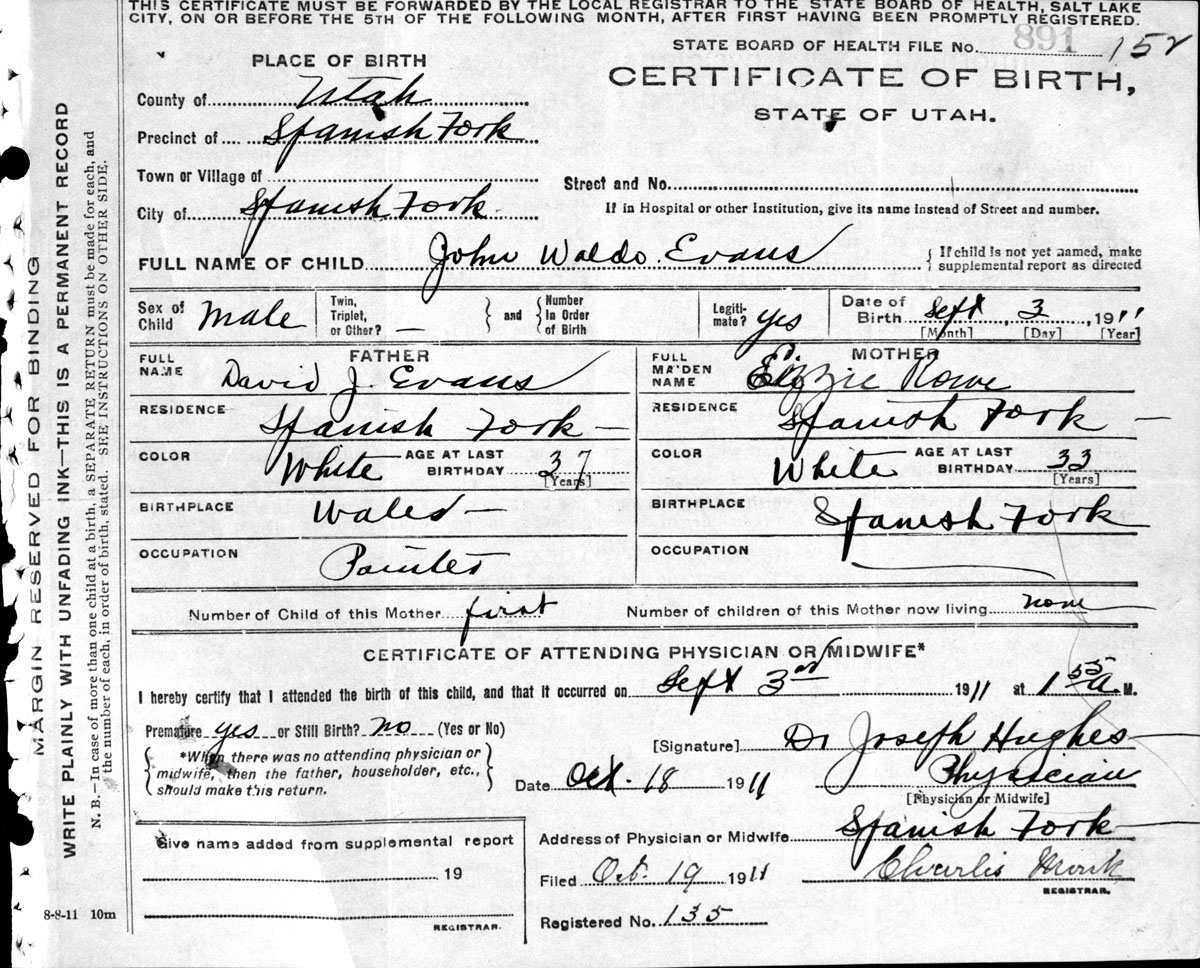 THIS CERTIFICATE MUST BE FORWARDED BY THE LOCAL REGISTRAR TO THE STATE BOARD OF HEALTH, SALT LAKE
CITY, ON OR BEFORE THE 5TH OF THE FOLLOWING MONTH, AFTER FIRST HAVING BEEN PROMPTLY REGISTERED.
STATE BOARD OF HEALTH FILE No. 891 152
PLACE OF BIRTH
CERTIFICATE OF BIRTH,
STATE OF UTAH.
County of Utah
Precinct of Spanish Fork
Town or Village of
Street and No.
City of Spanish Fork
If in Hospital or other Institution, give its name instead of Street and number.
FULL NAME OF CHILD John Waldo Evans
{ If child is not yet named, make
supplemental report as directed
Sex of Child Male
Twin, Triplet, or Other? —
} and { Number In Order of Birth
Legiti-mate? yes
Date of Birth Sept 3, 1911
[Month] [Day] [Year]
FATHER
FULL NAME David J. Evans
RESIDENCE Spanish Fork —
COLOR White AGE AT LAST BIRTHDAY 37
[Years]
BIRTHPLACE Wales —
OCCUPATION Painter
MOTHER
FULL MAIDEN NAME Lizzie Rowe
RESIDENCE Spanish Fork —
COLOR White AGE AT LAST BIRTHDAY 33
[Years]
BIRTHPLACE Spanish Fork
OCCUPATION
Number of Child of this Mother first Number of children of this Mother now living none
CERTIFICATE OF ATTENDING PHYSICIAN OR MIDWIFE*
I hereby certify that I attended the birth of this child, and that it occurred on Sept 3rd 1911 at 1 55 A M.
Premature yes or Still Birth? no (Yes or No)
*When there was no attending physician or
midwife, then the father, householder, etc.,
should make this return.
[Signature] Dr Joseph Hughes
Physician
[Physician or Midwife]
Date Oct. 18 1911
Address of Physician or Midwife Spanish Fork
Filed Oct. 19 1911
Charlis Monk
REGISTRAR.
Registered No. 135
Give name added from supplemental report
19
REGISTRAR.
8-8-11 10m
MARGIN RESERVED FOR BINDING
WRITE PLAINLY WITH UNFADING INK—THIS IS A PERMANENT RECORD
N. B.—In case of more than one child at a birth, a SEPARATE RETURN must be made for each, and
the number of each, in order of birth, stated. SEE INSTRUCTIONS ON OTHER SIDE.